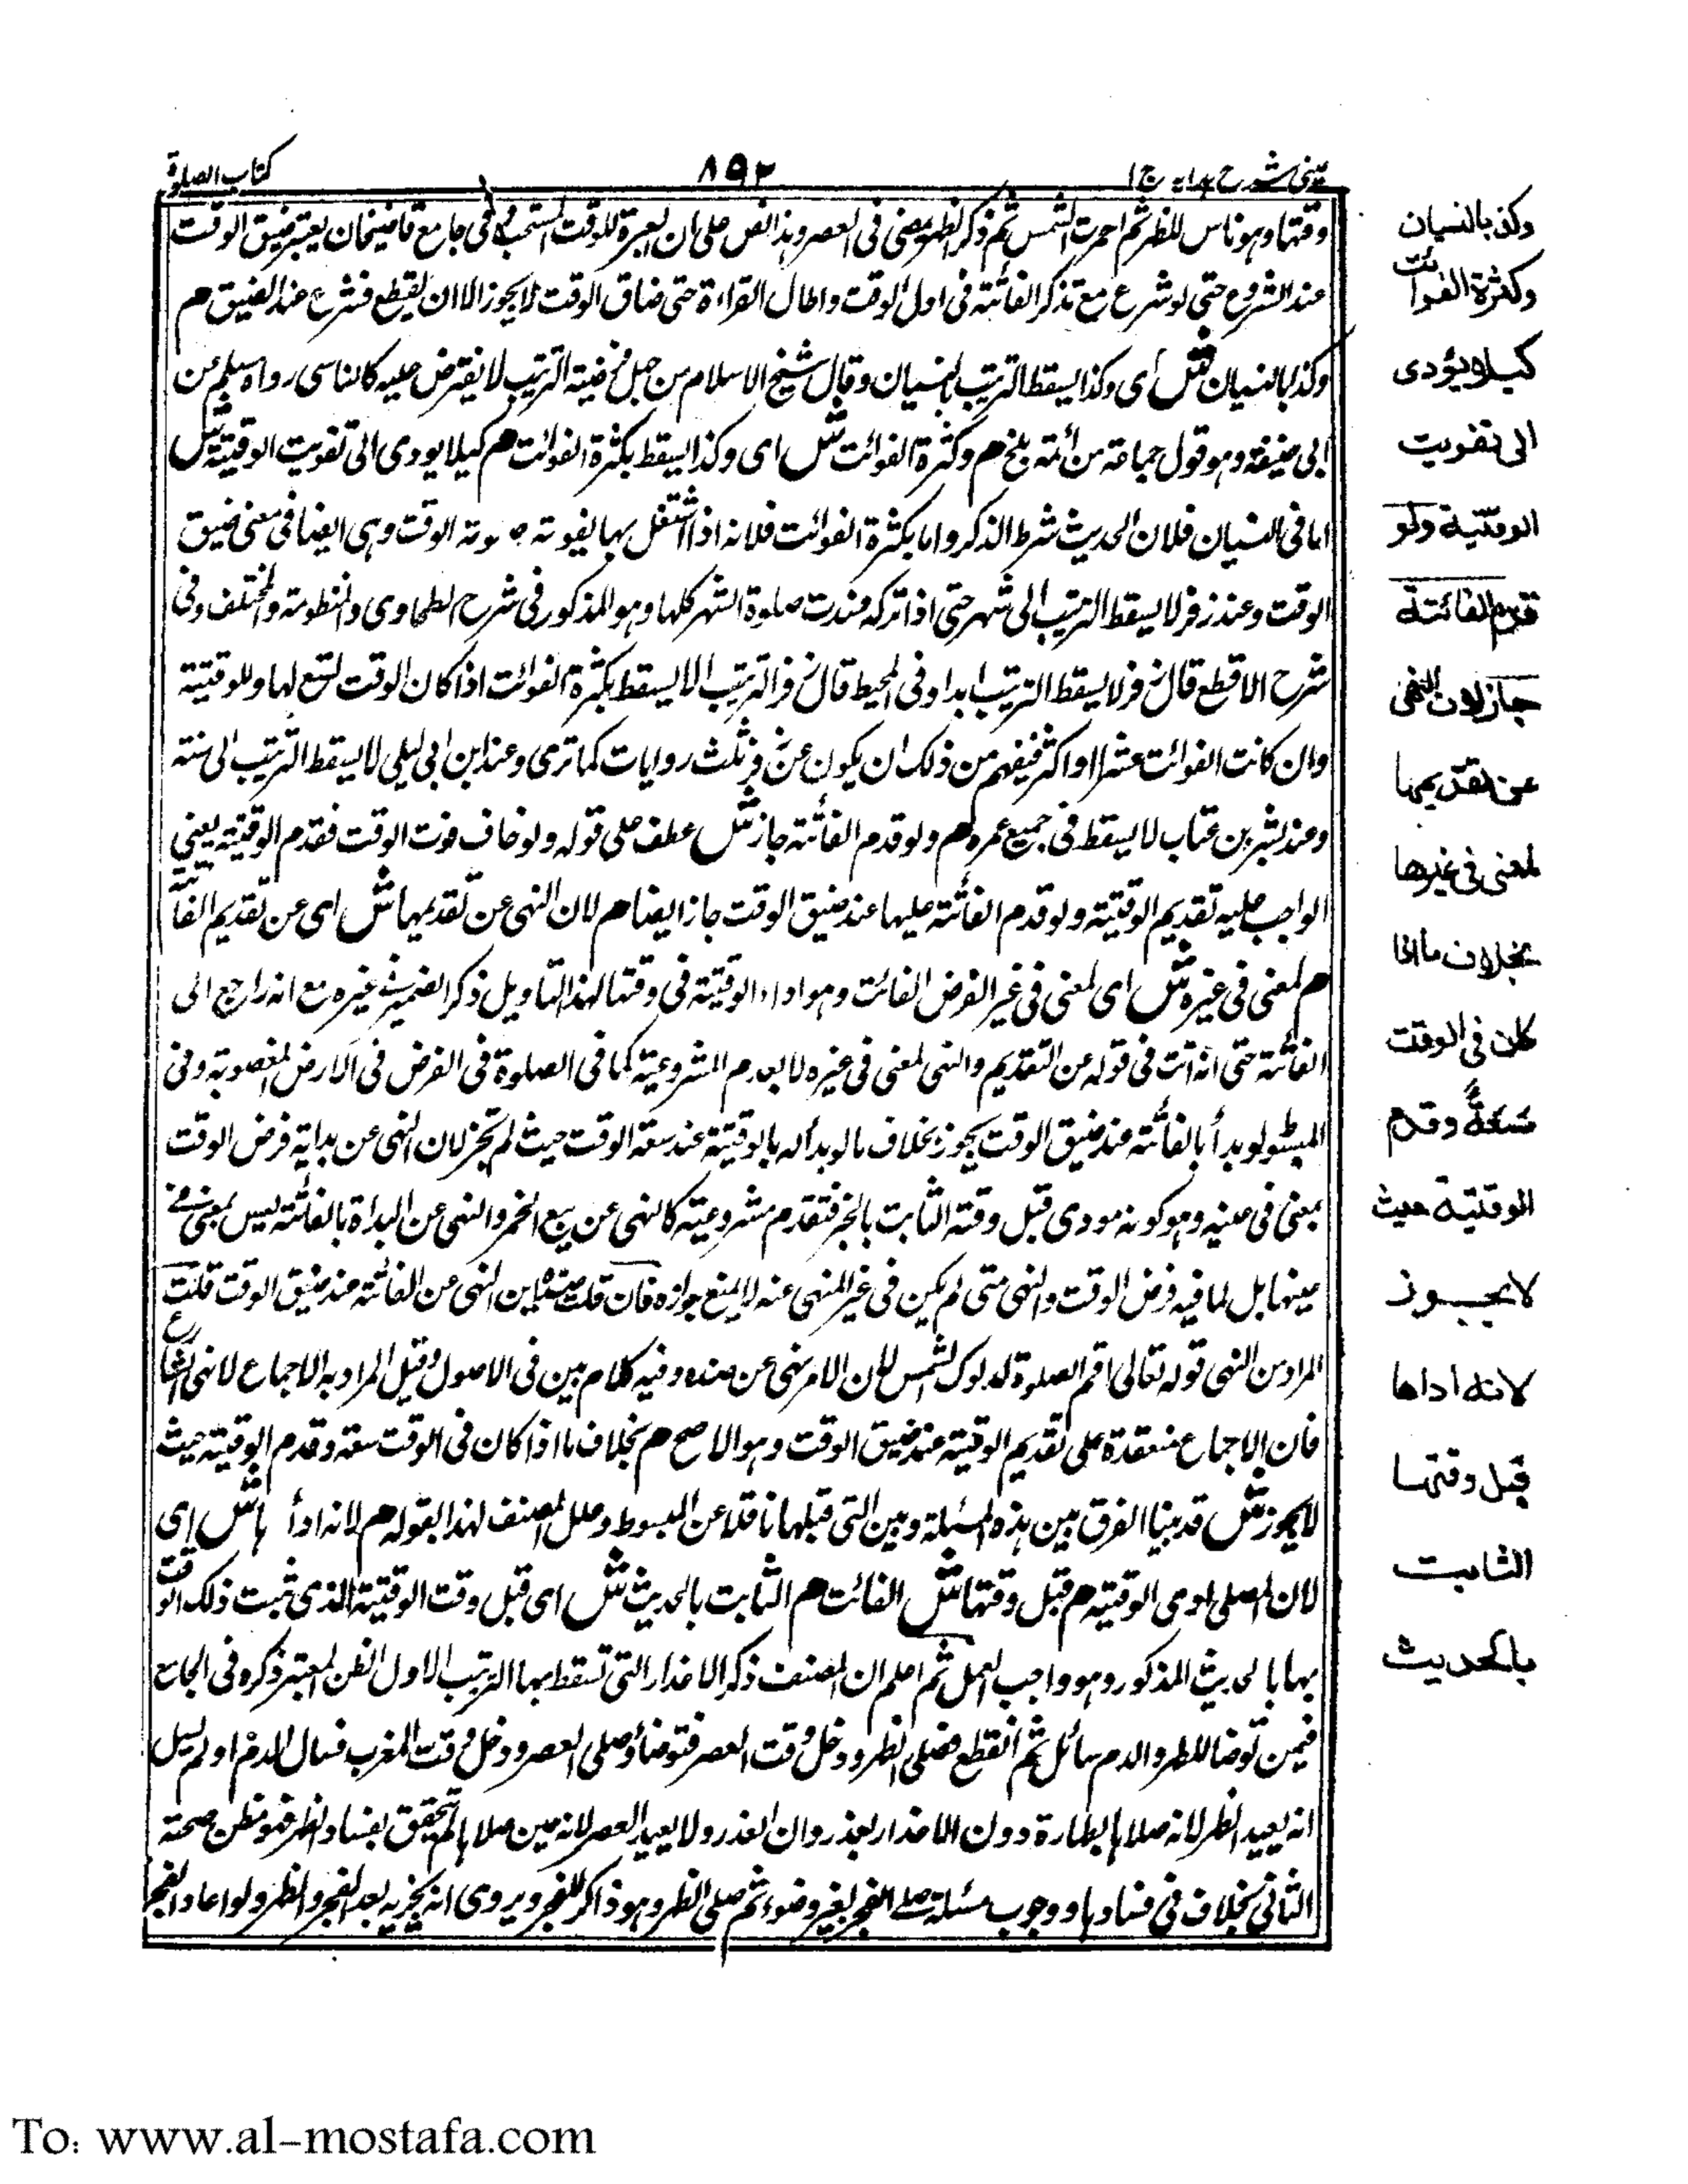 عینی شرح ہدایہ ج ۱
۸۹۲
کتاب الصلوة
وقتها وهو ناس للظهر ثم احمرت الشمس ثم ذكر الظهر مضى فى العصر وهذا نص على ان العبرة للوقت المستحب وفى جامع قاضيخان يعتبر ضيق الوقت
عند الشروع حتى لو شرع مع تذكر الفائتة فى اول الوقت واطال القراءة حتى ضاق الوقت لا يجوز الا ان يقطع فشرع عند الضيق هم
وكذا بالنسيان ش اى وكذا يسقط الترتيب بالنسيان وقال شيخ الاسلام من جهل فرضية الترتيب لا يفترض عليه كالناسى رواه عن
ابى حنيفة وهو قول جماعة من ائمة بلخ هم وكثرة الفوائت ش اى وكذا يسقط بكثرة الفوائت هم كيلا يودى الى تفويت الوقتية ش
اما فى النسيان فلان الحديث شرط الذكر واما بكثرة الفوائت فلانه اذا اشتغل بها يفوته الوقت وهى ايضا فى معنى ضيق
الوقت وعند زفر لا يسقط الترتيب الى شهر حتى اذا تركه فسدت صلوة الشهر كلها وهو المذكور فى شرح الطحاوى والمنظومة والمختلف وفى
شرح الاقطع قال زفر لا يسقط الترتيب ابدا وفى المحيط قال زفر الترتيب لا يسقط بكثرة الفوائت اذا كان الوقت يسع لها وللوقتية
وان كانت الفوائت عشرا او اكثر فيفهم من ذلك ان يكون عن زفر ثلث روايات كما ترى وعند ابن ابى ليلى لا يسقط الترتيب الى سنة
وعند بشر بن عتاب لا يسقط فى جميع عمره هم ولو قدم الفائتة جاز ش عطف على قوله ولو خاف فوت الوقت فقدم الوقتية يعنى
الواجب عليه تقديم الوقتية ولو قدم الفائتة عليها عند ضيق الوقت جاز ايضا هم لان النهى عن تقديمها ش اى عن تقديم الفائتة
هم لمعنى فى غيره ش اى لمعنى فى غير الفرض الفائت وهو اداء الوقتية فى وقتها لهذا التاويل ذكر الضمير فى غيره مع انه راجع الى
الفائتة حتى انه انث فى قوله عن التقديم والنهى لمعنى فى غيره لا يعدم المشروعية كما فى الصلوة فى الفرض فى الارض المغصوبة وفى
المبسوط لو بدأ بالفائتة عند ضيق الوقت يجوز بخلاف ما لو بدأ له بالوقتية عند سعة الوقت حيث لم تجز لان النهى عن بداية فرض الوقت
بمعنى فى عينه وهو كونه مودى قبل وقته الثابت بالخبر فتقدم مشروعيته كالنهى عن بيع الخمر والنهى عن البداة بالفائتة ليس لمعنى فى
عينها بل لما فيه فرض الوقت والنهى متى لم يكن فى غير المنهى عنه لا يمنع جوازه فان قلت اين النهى عن الفائتة عند ضيق الوقت قلت
المراد من النهى قوله تعالى اقم الصلوة لدلوك الشمس لان الامر نهى عن ضده وفيه كلام بين فى الاصول وقيل المراد به الاجماع لا نهى الشارع
فان الاجماع منعقدة على تقديم الوقتية عند ضيق الوقت وهو الاصح هم بخلاف ما اذا كان فى الوقت سعة وقدم الوقتية حيث
لا يجوز ش قد بينا الفرق بين هذه المسئلة وبين التى قبلها ناقلا عن المبسوط وعلل المصنف لهذا بقوله هم لانه اداها ش اى
لان المصلى ادى الوقتية هم قبل وقتها ش الفائت هم الثابت بالحديث ش اى قبل وقت الوقتية الذى ثبت ذلك الوقت
بها بالحديث المذكور وهو واجب العمل ثم اعلم ان المصنف ذكر الاعذار التى تسقط بها الترتيب الاول الظن المعتبر ذكره فى الجامع
فيمن توضا للظهر والدم سائل ثم انقطع فصلى الظهر ودخل وقت العصر فتوضأ وصلى العصر ودخل وقت المغرب فسال الدم او لم يسل
انه يعيد الظهر لانه صلاها بطهارة دون الاعذار بعذر وان العذر ولا يعيد العصر لانه حين صلاها لم يتحقق بفساد الظهر فهو مظن صحته
الثانى بخلاف فى فسادها ووجوب مسئلة صلى الفجر بغير وضوء ثم صلى الظهر وهو ذاكر للفجر ويروى انه يجزيه بعد الفجر والظهر ولو اعاد الفجر
وكذا بالنسيان
وكثرة الفوائت
كيلا يؤدى
الى تفويت
الوقتية ولو
قدم الفائتة
جاز لان النهى
عن تقديمها
لمعنى فى غيرها
بخلاف ما اذا
كان فى الوقت
سعة وقدم
الوقتية حيث
لا يجوز
لانه اداها
قبل وقتها
الثابت
بالحديث
To: www.al-mostafa.com